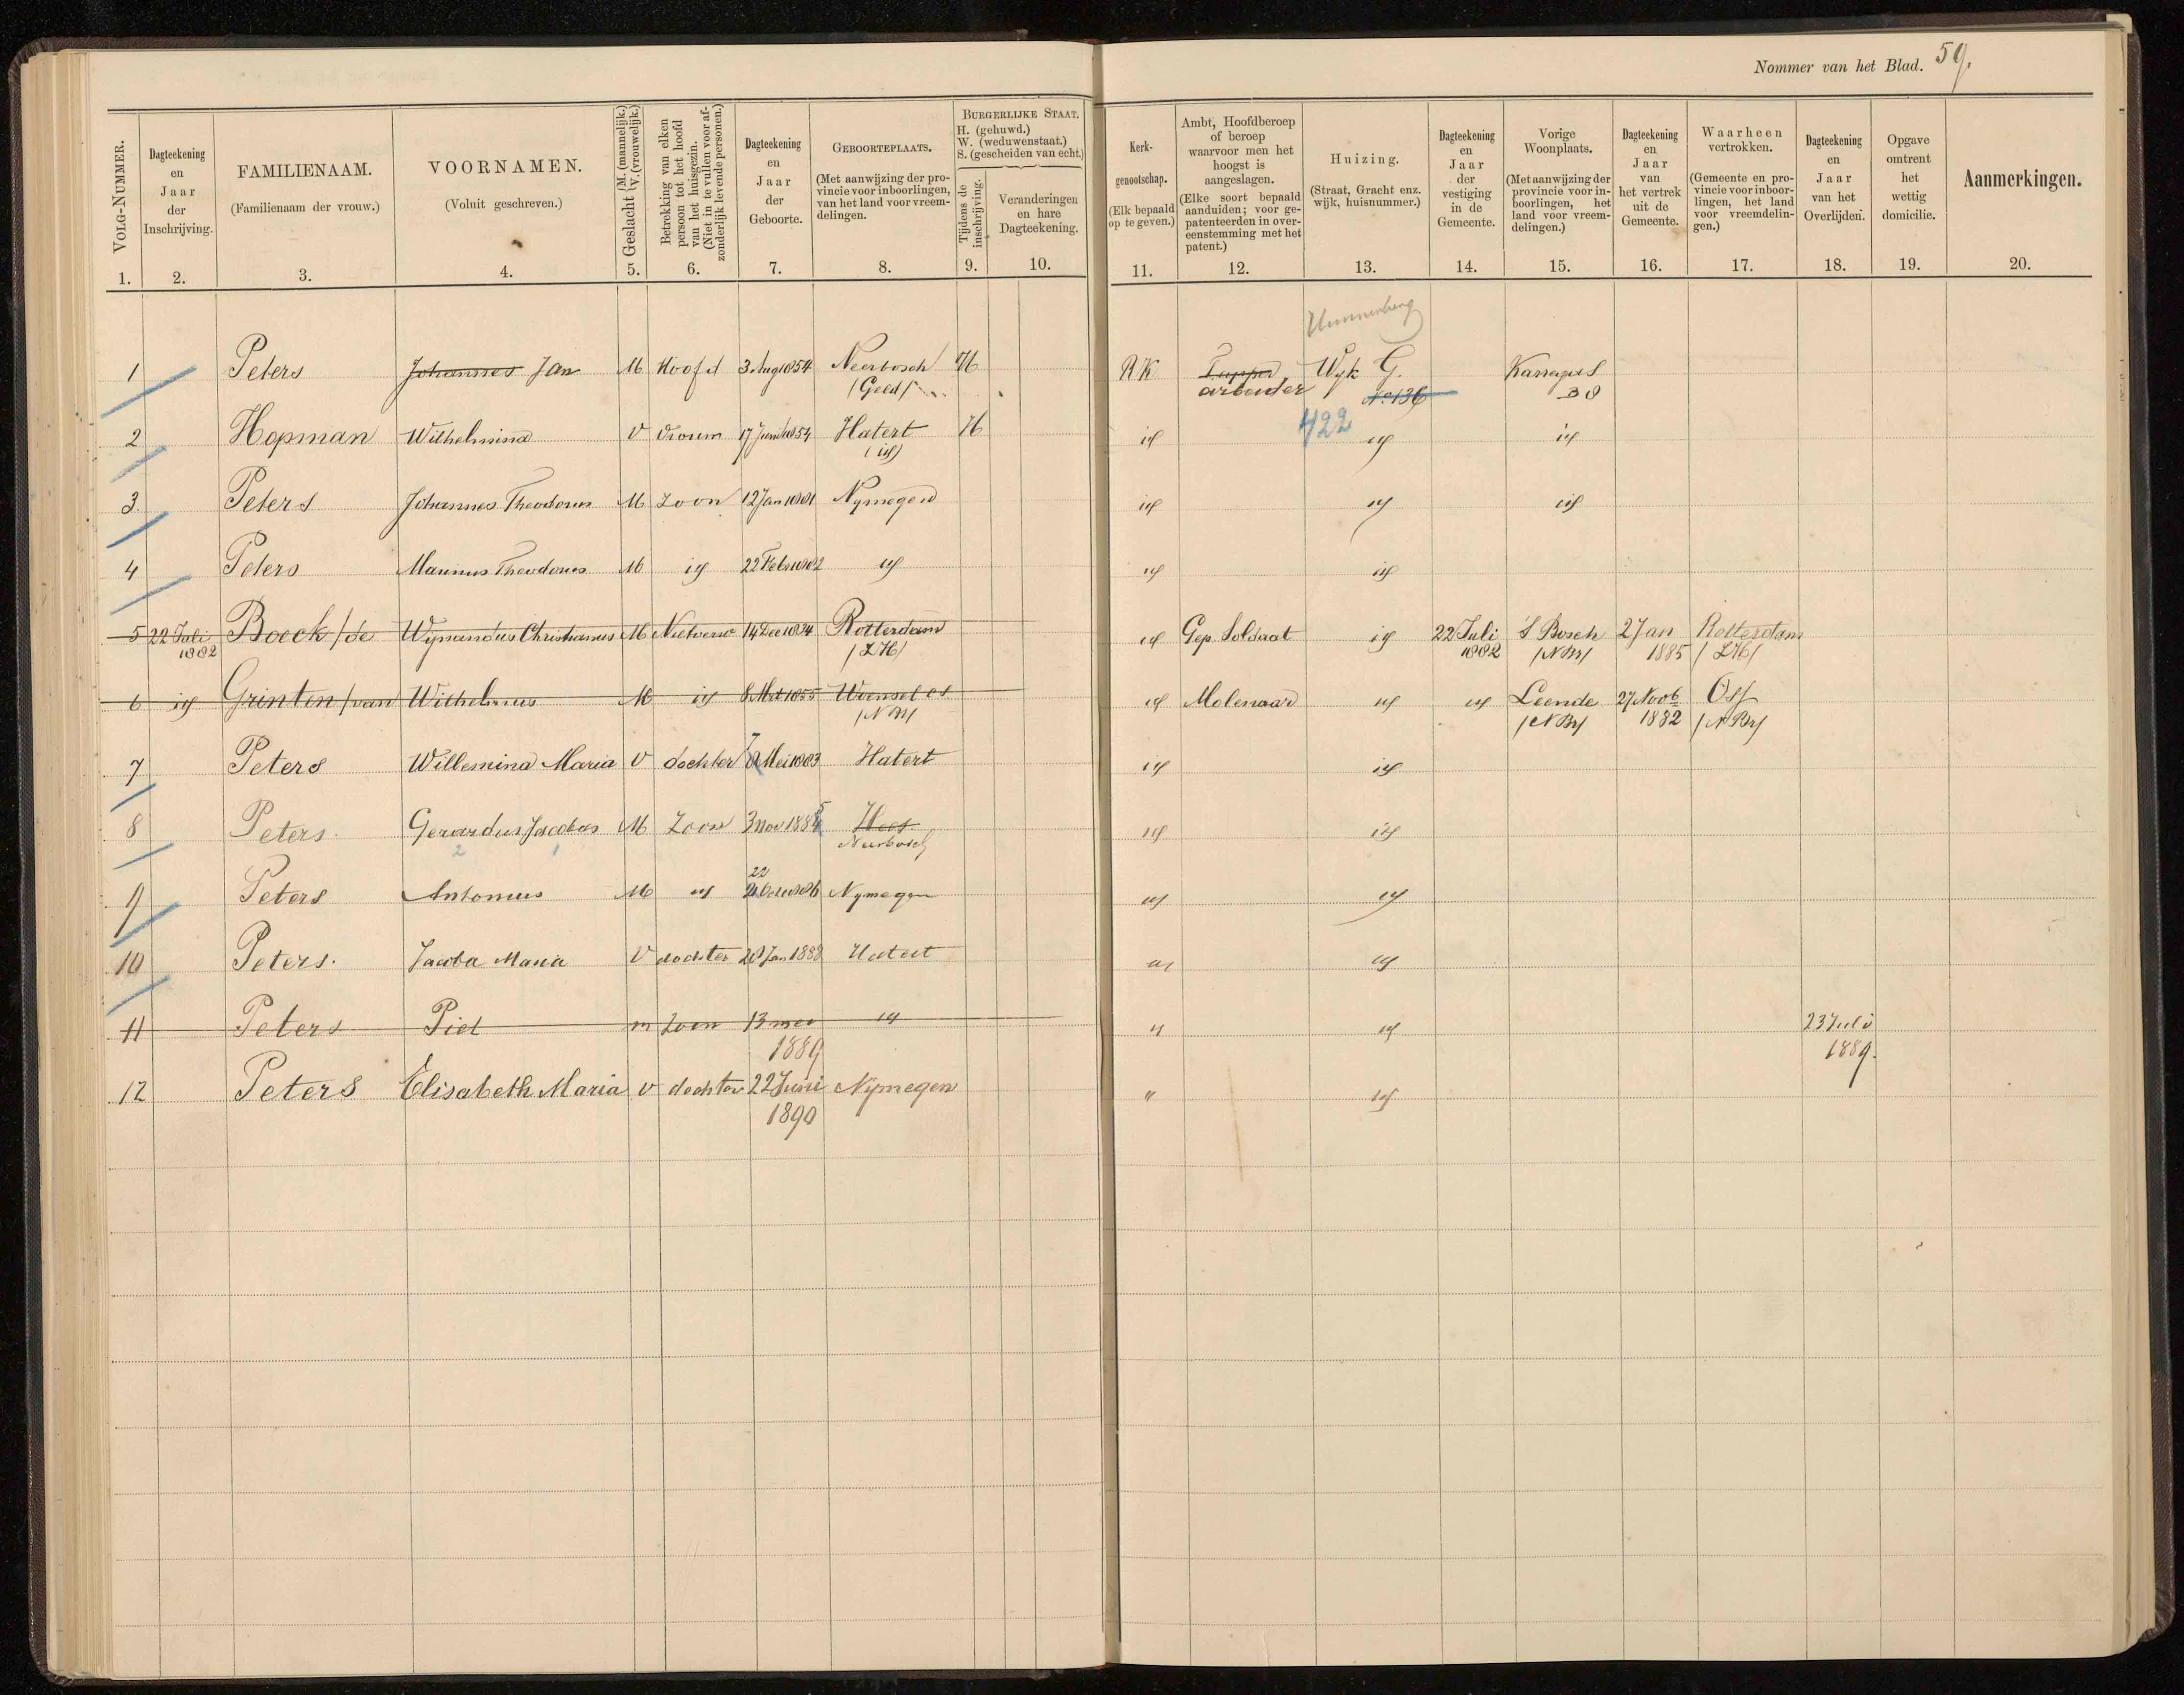 Nommer van het Blad. 59.
VOLG-NUMMER.
1.
Dagteekening
en
Jaar
der
Inschrijving.
2.
FAMILIENAAM.
(Familienaam der vrouw.)
3.
VOORNAMEN.
(Voluit geschreven.)
4.
Geslacht (M. (mannelijk.) V. (vrouwelijk.)
5.
Betrekking van elken
persoon tot het hoofd
van het huisgezin.
(Niet in te vullen voor af-
zonderlijk levende personen.)
6.
Dagteekening
en
Jaar
der
Geboorte.
7.
GEBOORTEPLAATS.
(Met aanwijzing der pro-
vincie voor inboorlingen,
van het land voor vreem-
delingen.
8.
BURGERLIJKE STAAT.
H. (gehuwd.)
W. (weduwenstaat.)
S. (gescheiden van echt.)
Tijdens de
inschrijving.
9.
Veranderingen
en hare
Dagteekening.
10.
Kerk-
genootschap.
(Elk bepaald
op te geven.)
11.
Ambt, Hoofdberoep
of beroep
waarvoor men het
hoogst is
aangeslagen.
(Elke soort bepaald
aanduiden; voor ge-
patenteerden in over-
eenstemming met het
patent.)
12.
Huizing.
(Straat, Gracht enz.
wijk, huisnummer.)
13.
Dagteekening
en
Jaar
der
vestiging
in de
Gemeente.
14.
Vorige
Woonplaats.
(Met aanwijzing der
provincie voor in-
boorlingen, het
land voor vreem-
delingen.)
15.
Dagteekening
en
Jaar
van
het vertrek
uit de
Gemeente.
16.
Waarheen
vertrokken.
(Gemeente en pro-
vincie voor inboor-
lingen, het land
voor vreemdelin-
gen.)
17.
Dagteekening
en
Jaar
van het
Overlijden.
18.
Opgave
omtrent
het
wettig
domicilie.
19.
Aanmerkingen.
20.
1 Peters Johannes Jan M Hoofd 3 Aug 1854 Neerbosch H RK Tapper Wyk G.
(Geld) arbeider No 136
422
2 Hopman Wilhelmina V Vrouw 17 Juni 1854 Hatert H id id id
(id)
3 Peters Johannes Theodorus M Zoon 12 Jan 1881 Nymegen id id id
4 Peters Marinus Theodorus M id 22 Feb 1882 id id id
5 22 Juli Boeck /de Wynandus Christianus M 14 Dec 1834 Rotterdam id Gep. Soldaat id 22 Juli 'S Bosch 2 Jan Rotterdam
1882 /ZH/ 1882 /NBr/ 1885 /ZH/
6 id Grinten /van Wilhelmus M id 8 Mrt 1855 Woensel id Molenaar id id Leende 27 Novb Oss
/NBr/ /NBr/ 1882 /NBr/
7 Peters Willemina Maria V dochter 7 Mei 1883 Hatert id id
8 Peters Gerardus Jacobus M Zoon 3 Nov 1885 Hees id id
2 1 Neerbosch
22
9 Peters Antonius M id Nymegen id id
10 Peters. Jacoba Maria V dochter 20 Jan 1888 Hatert id id
11 Peters Piet m Zoon 13 mei id " id 23 Juli
1889 1889.
12 Peters Elisabeth Maria v dochter 22 Juni Nijmegen " id
1890